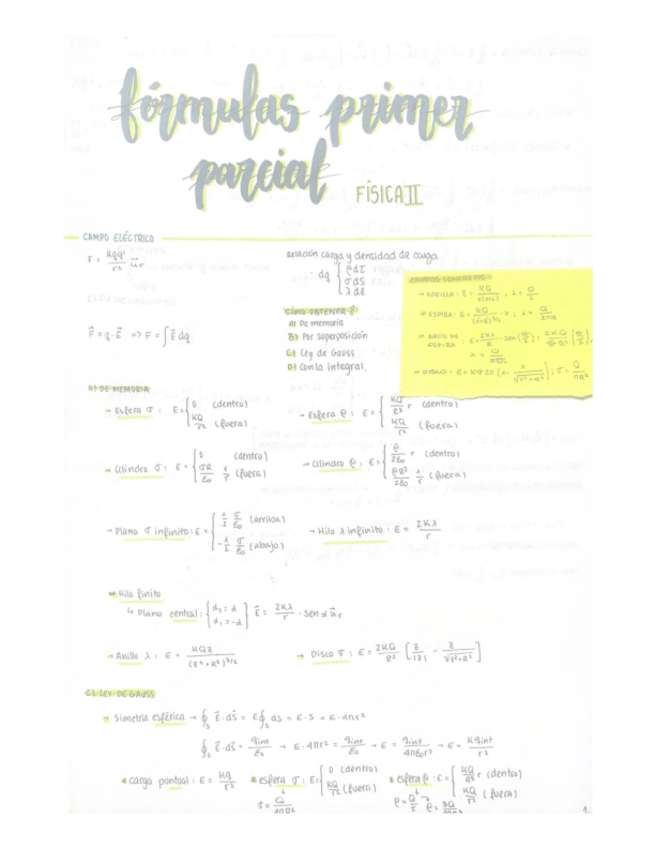 fórmulas primer
parcial FÍSICA II
CAMPO ELÉCTRICO
F = KQq'/r² u⃗r
Relación carga y densidad de carga
dq { ρdτ
σdS
λdl
F⃗ = q·E⃗ => F = ∫E⃗dq
CÓMO OBTENER E⃗
A) De memoria
B) Por superposición
C) Ley de Gauss
D) Con la integral.
A) DE MEMORIA
→ Esfera σ : E = { 0 (dentro)
KQ/r² (fuera)
→ Esfera ρ : E = { KQ/R³ r (dentro)
KQ/r² (fuera)
→ Cilindro σ : E = { 0 (dentro)
σR/ε₀ 1/r (fuera)
→ Cilindro ρ : E = { ρ/2ε₀ r (dentro)
ρR²/2ε₀ 1/r (fuera)
→ Plano σ infinito : E = { 1/2 σ/ε₀ (arriba)
-1/2 σ/ε₀ (abajo)
→ Hilo λ infinito : E = 2Kλ/r
→ Hilo finito
↳ Plano central : { α₂ = α
α₁ = -α } E⃗ = 2Kλ/r · sen α u⃗r
→ Anillo λ : E = KQz/(z²+R²)^3/2
→ Disco σ : E = 2KQ/R² [z/|z| - z/√z²+R²]
C) LEY DE GAUSS
→ Simetría esférica → ∮s E⃗·dS⃗ = E∮s dS = E·S = E·4πr²
∮s E⃗·dS⃗ = qint/ε₀ → E·4πr² = qint/ε₀ → E = qint/4πε₀r² → E = Kqint/r²
• carga pontual : E = Kq/r²
• esfera σ : E = { 0 (dentro)
KQ/r² (fuera)
• esfera ρ : E = { KQ/R³ r (dentro)
KQ/r² (fuera)
1.